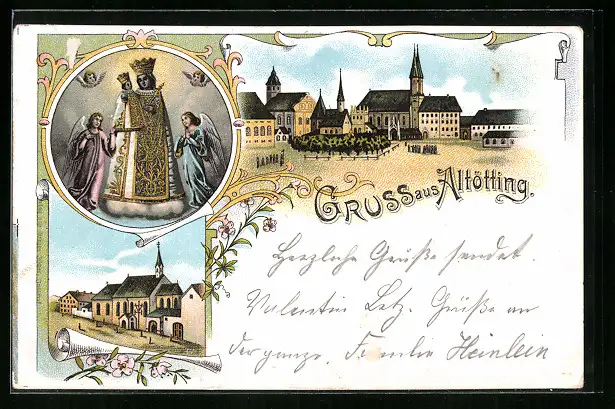 GRUSS aus Altötting.
Herzliche Grüße sendet
Valentin Letz. Grüße an
der ganze. Familie Heinlein